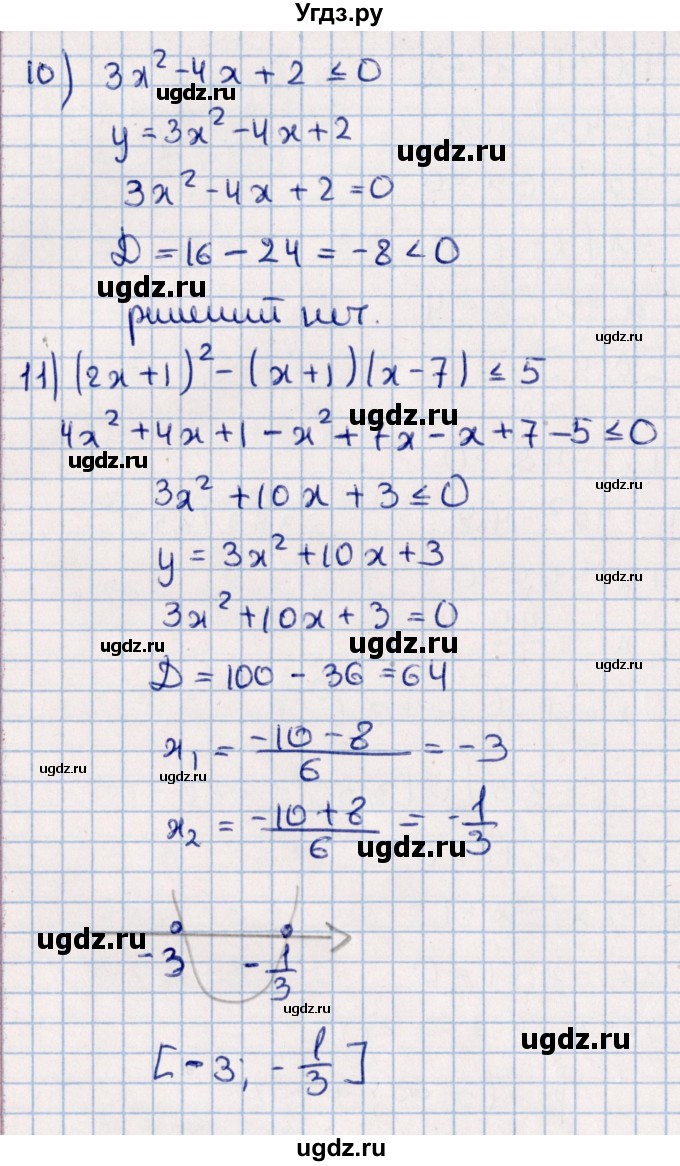 Угдз.ру
10) 3x² - 4x + 2 ≤ 0
ugdz.ru
y = 3x² - 4x + 2
ugdz.ru
3x² - 4x + 2 = 0
Д = 16 - 24 = -8 < 0
ugdz.ru
решений нет.
ugdz.ru
11) (2x + 1)² - (x + 1)(x - 7) ≤ 5
ugdz.ru
4x² + 4x + 1 - x² + 7x - x + 7 - 5 ≤ 0
ugdz.ru
3x² + 10x + 3 ≤ 0
ugdz.ru
y = 3x² + 10x + 3
ugdz.ru
3x² + 10x + 3 = 0
ugdz.ru ugdz.ru
Д = 100 - 36 = 64
ugdz.ru
x₁ = (-10 - 8)/6 = -3
ugdz.ru ugdz.ru
x₂ = (-10 + 8)/6 = -1/3
ugdz.ru
ugdz.ru
-3 -1/3
ugdz.ru
ugdz.ru
[-3; -1/3]
ugdz.ru